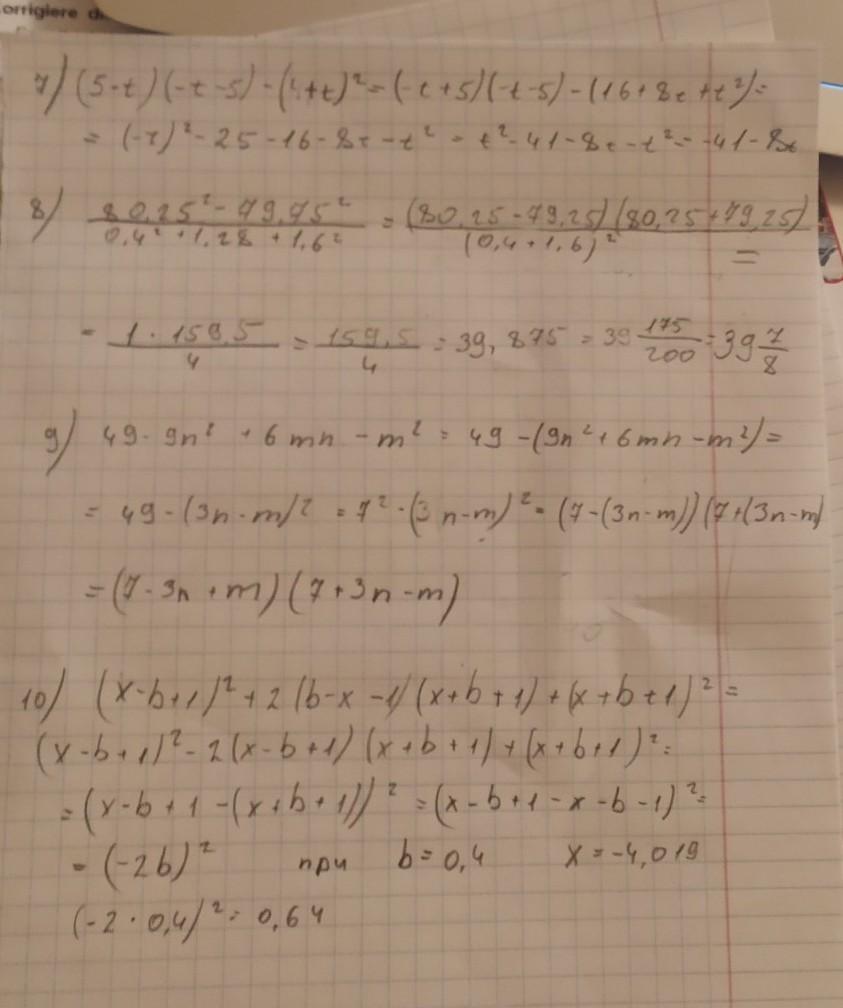 orrigiere d
7) (5-t)(-t-5)-(4+t)²=(-t+5)(-t-5)-(16+8t+t²)=
= (-t)²-25-16-8t-t² = t²-41-8t-t²=-41-8t
8) \frac{80,25²-79,75²}{0,4²+1,28+1,6²} = \frac{(80,25-79,25)(80,25+79,25)}{(0,4+1,6)²} =
= \frac{1·159,5}{4} = \frac{159,5}{4} = 39,875 = 39\frac{175}{200} = 39\frac{7}{8}
9) 49-9n²+6mn-m² = 49-(9n²+6mn-m²)=
= 49-(3n-m)² = 7²-(3n-m)² = (7-(3n-m))(7+(3n-m)
=(7-3n+m)(7+3n-m)
10) (x-b+1)²+2(b-x-1)(x+b+1)+(x+b+1)²=
(x-b+1)²-2(x-b+1)(x+b+1)+(x+b+1)²=
=(x-b+1-(x+b+1))²=(x-b+1-x-b-1)²=
=(-2b)² при b=0,4 x=-4,019
(-2·0,4)²=0,64